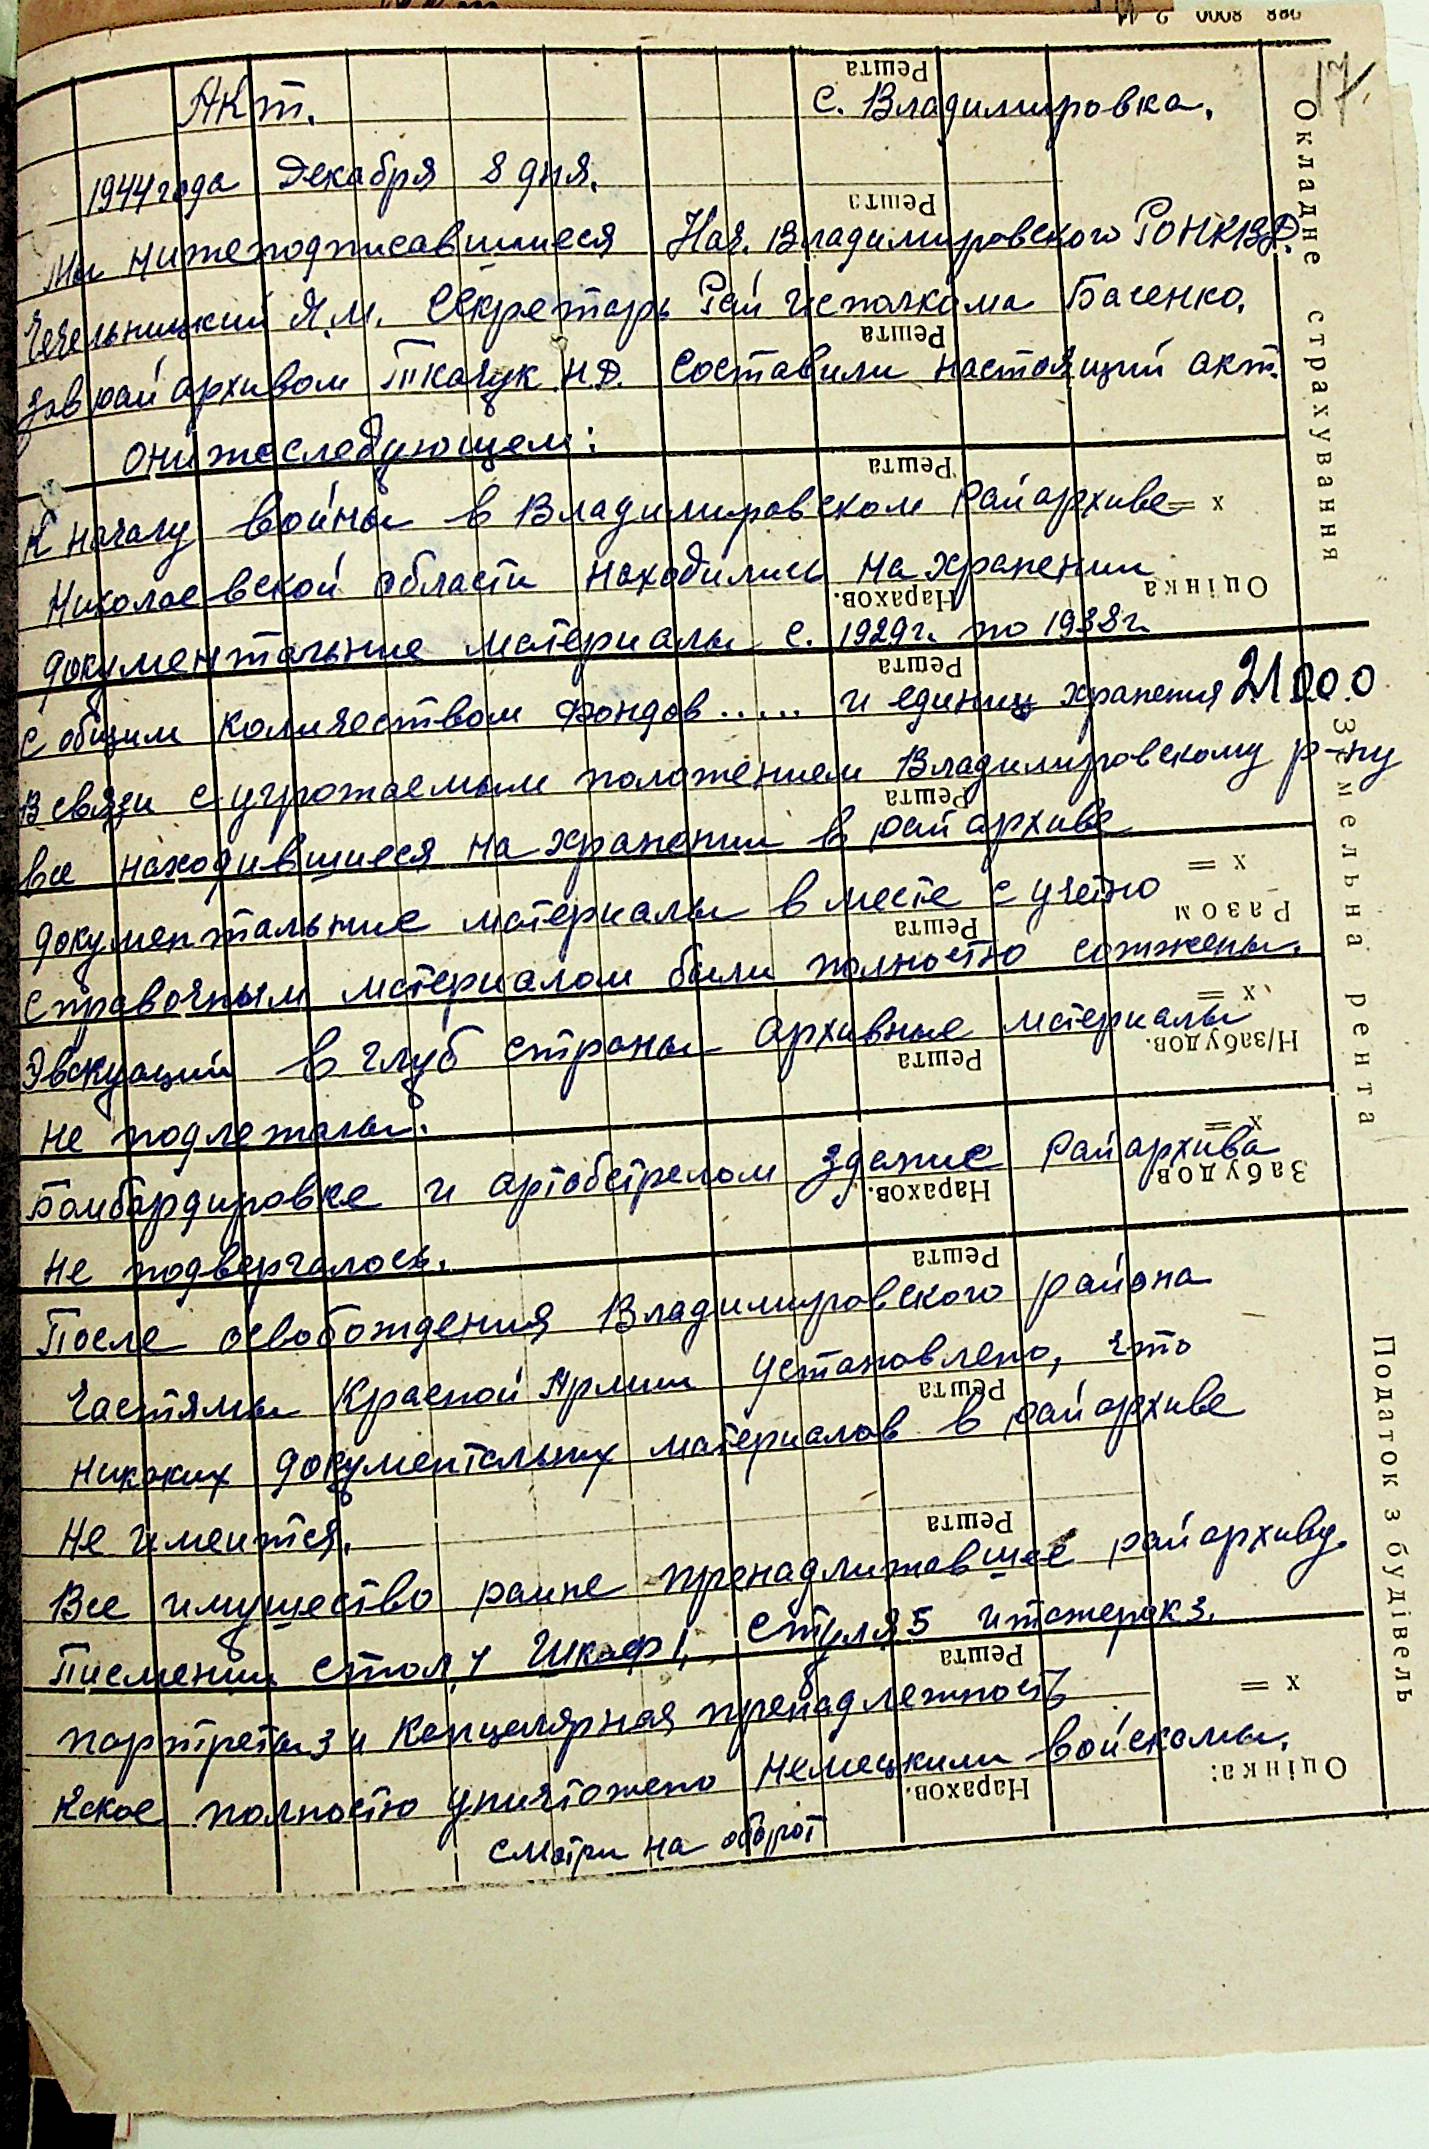 17.
Акт. с. Владимировка.
1944 года Декабря 8 дня.
Мы нижеподписавшиеся Нач. Владимировского РОНКВД.
Чечельницкий Я.М. Секретарь Райисполкома Басенко.
Зав рай архивом Ткачук Н.Д. Составили настоящий акт.
о нижеследующем:
К началу войны в Владимировском Райархиве
Николаевской области находились на хранении
документальные материалы с. 1929 г. по 1938 г.
с общим количеством фондов ..... и единиц хранения 21000
В связи с угрожаемым положением Владимировскому р-ну
все находившиеся на хранении в рай архиве
документальные материалы вместе с учетно
справочным материалом были полностю сожжены.
Эвакуации в глуб страны архивные материалы
не подлежалы.
Бомбардировке и артобстрелом здание Райархива
не подвергалось.
После освобождения Владимировского района
частямы Красной Армии установлено, что
никаких документальных материалов в рай архиве
не имеится.
Все имущество ранне пренадлижавшее райархиву.
Писменый стол 1 Шкаф 1, стуля 5 итажерак 3.
портреты 3 и Канцелярная пренадлежность
полностю уничтожено немецкими войскамы.
смотри на оборот
Окладне страхування
Земельна рента
Податок з будівель
Решта
Решта
Решта
Решта
х =
Оцінка
Нарахов.
Решта
Решта
х =
Разом
Решта
х =
Н/забудов.
Решта
х =
Забудов.
Нарахов.
Решта
Решта
Решта
Решта
х =
Оцінка:
Нарахов.